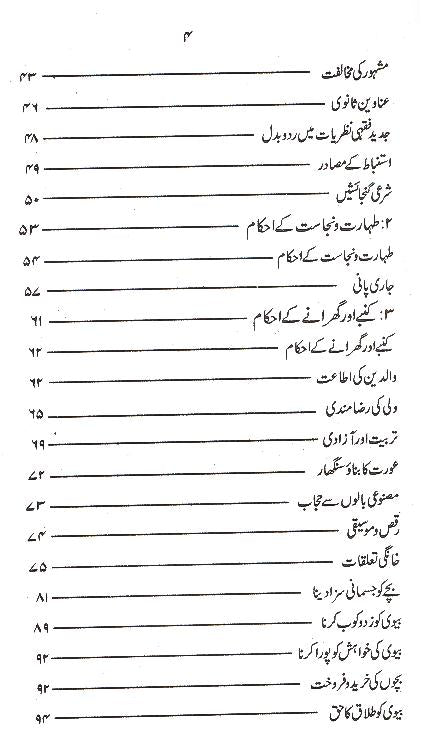 ۴
مشہور کی مخالفت ۴۳
عناوین ثانوی ۴۶
جدید فقہی نظریات میں ردوبدل ۴۸
استنباط کے مصادر ۴۹
شرعی گنجائشیں ۵۰
۲: طہارت و نجاست کے احکام ۵۳
طہارت و نجاست کے احکام ۵۴
جاری پانی ۵۷
۳: کنبے اور گھرانے کے احکام ۶۱
کنبے اور گھرانے کے احکام ۶۲
والدین کی اطاعت ۶۲
ولی کی رضامندی ۶۵
تربیت اور آزادی ۶۹
عورت کا بناؤ سنگھار ۷۲
مصنوعی بالوں سے حجاب ۷۳
رقص و موسیقی ۷۴
خانگی تعلقات ۷۵
بچے کو جسمانی سزا دینا ۸۱
بیوی کو زدوکوب کرنا ۸۹
بیوی کی خواہش کو پورا کرنا ۹۲
بچوں کی خرید و فروخت ۹۲
بیوی کو طلاق کا حق ۹۴